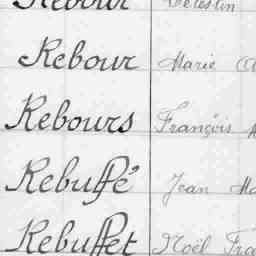 Rebour Célestin
Rebour Marie
Rebours François
Rebuffé Jean
Rebuffet Noël